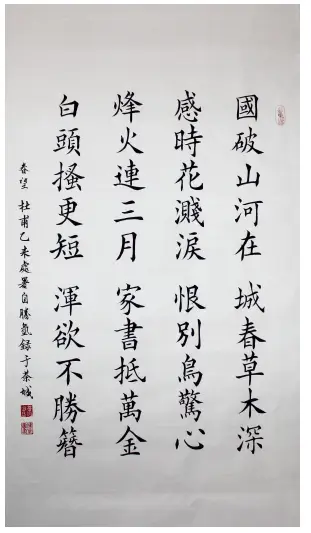 國破山河在 城春草木深
感時花濺淚 恨別鳥驚心
烽火連三月 家書抵萬金
白頭搔更短 渾欲不勝簪
春望 杜甫乙未處暑自勝氣錄于茶城